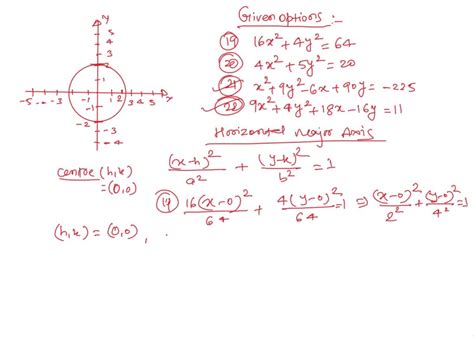 y
5
4
3
2
-5 -4 -3 -1 1 2 3 4 5 x
-1
-2
-3
-4
Given options :-
(19) 16x² + 4y² = 64
(20) 4x² + 5y² = 20
(21) x² + 9y² - 6x + 90y = -225
(22) 9x² + 4y² + 18x - 16y = 11
Horizontal Major Axis
centre (h,k) = (0,0)
(x-h)²/a² + (y-k)²/b² = 1
(19) 16(x-0)²/64 + 4(y-0)²/64 = 1 ⇒ (x-0)²/2² + (y-0)²/4² = 1
(h,k) = (0,0),